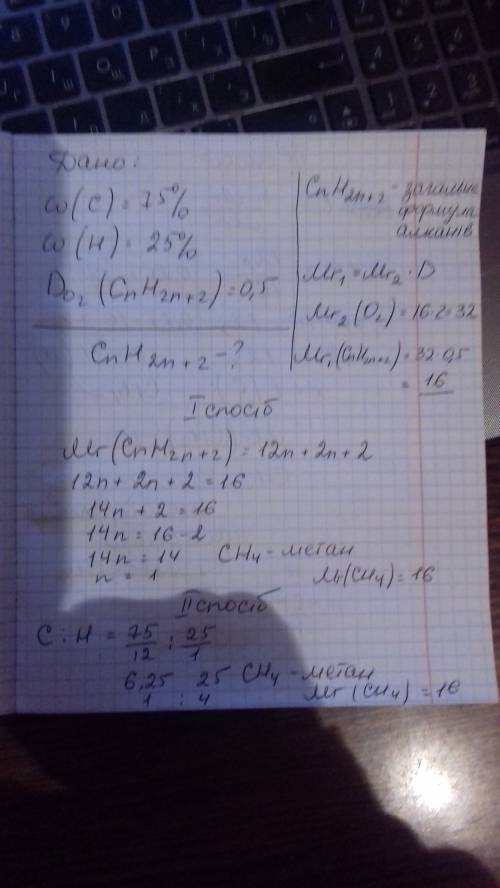 Дано:
ω(C) = 75%
ω(H) = 25%
D O₂ (CnH2n+2) = 0,5
CnH2n+2 - ?
CnH2n+2 - загальна
формула
алканів
Mr₁ = Mr₂ · D
Mr₂(O₂) = 16·2 = 32
Mr₁(CnH2n+2) = 32·0,5
= 16
I спосіб
Mr(CnH2n+2) = 12n + 2n + 2
12n + 2n + 2 = 16
14n + 2 = 16
14n = 16 - 2
14n = 14 CH₄ - метан
n = 1 Mr(CH₄) = 16
II спосіб
C : H = 75/12 : 25/1
6,25 25 CH₄ - метан
1 : 4 Mr(CH₄) = 16